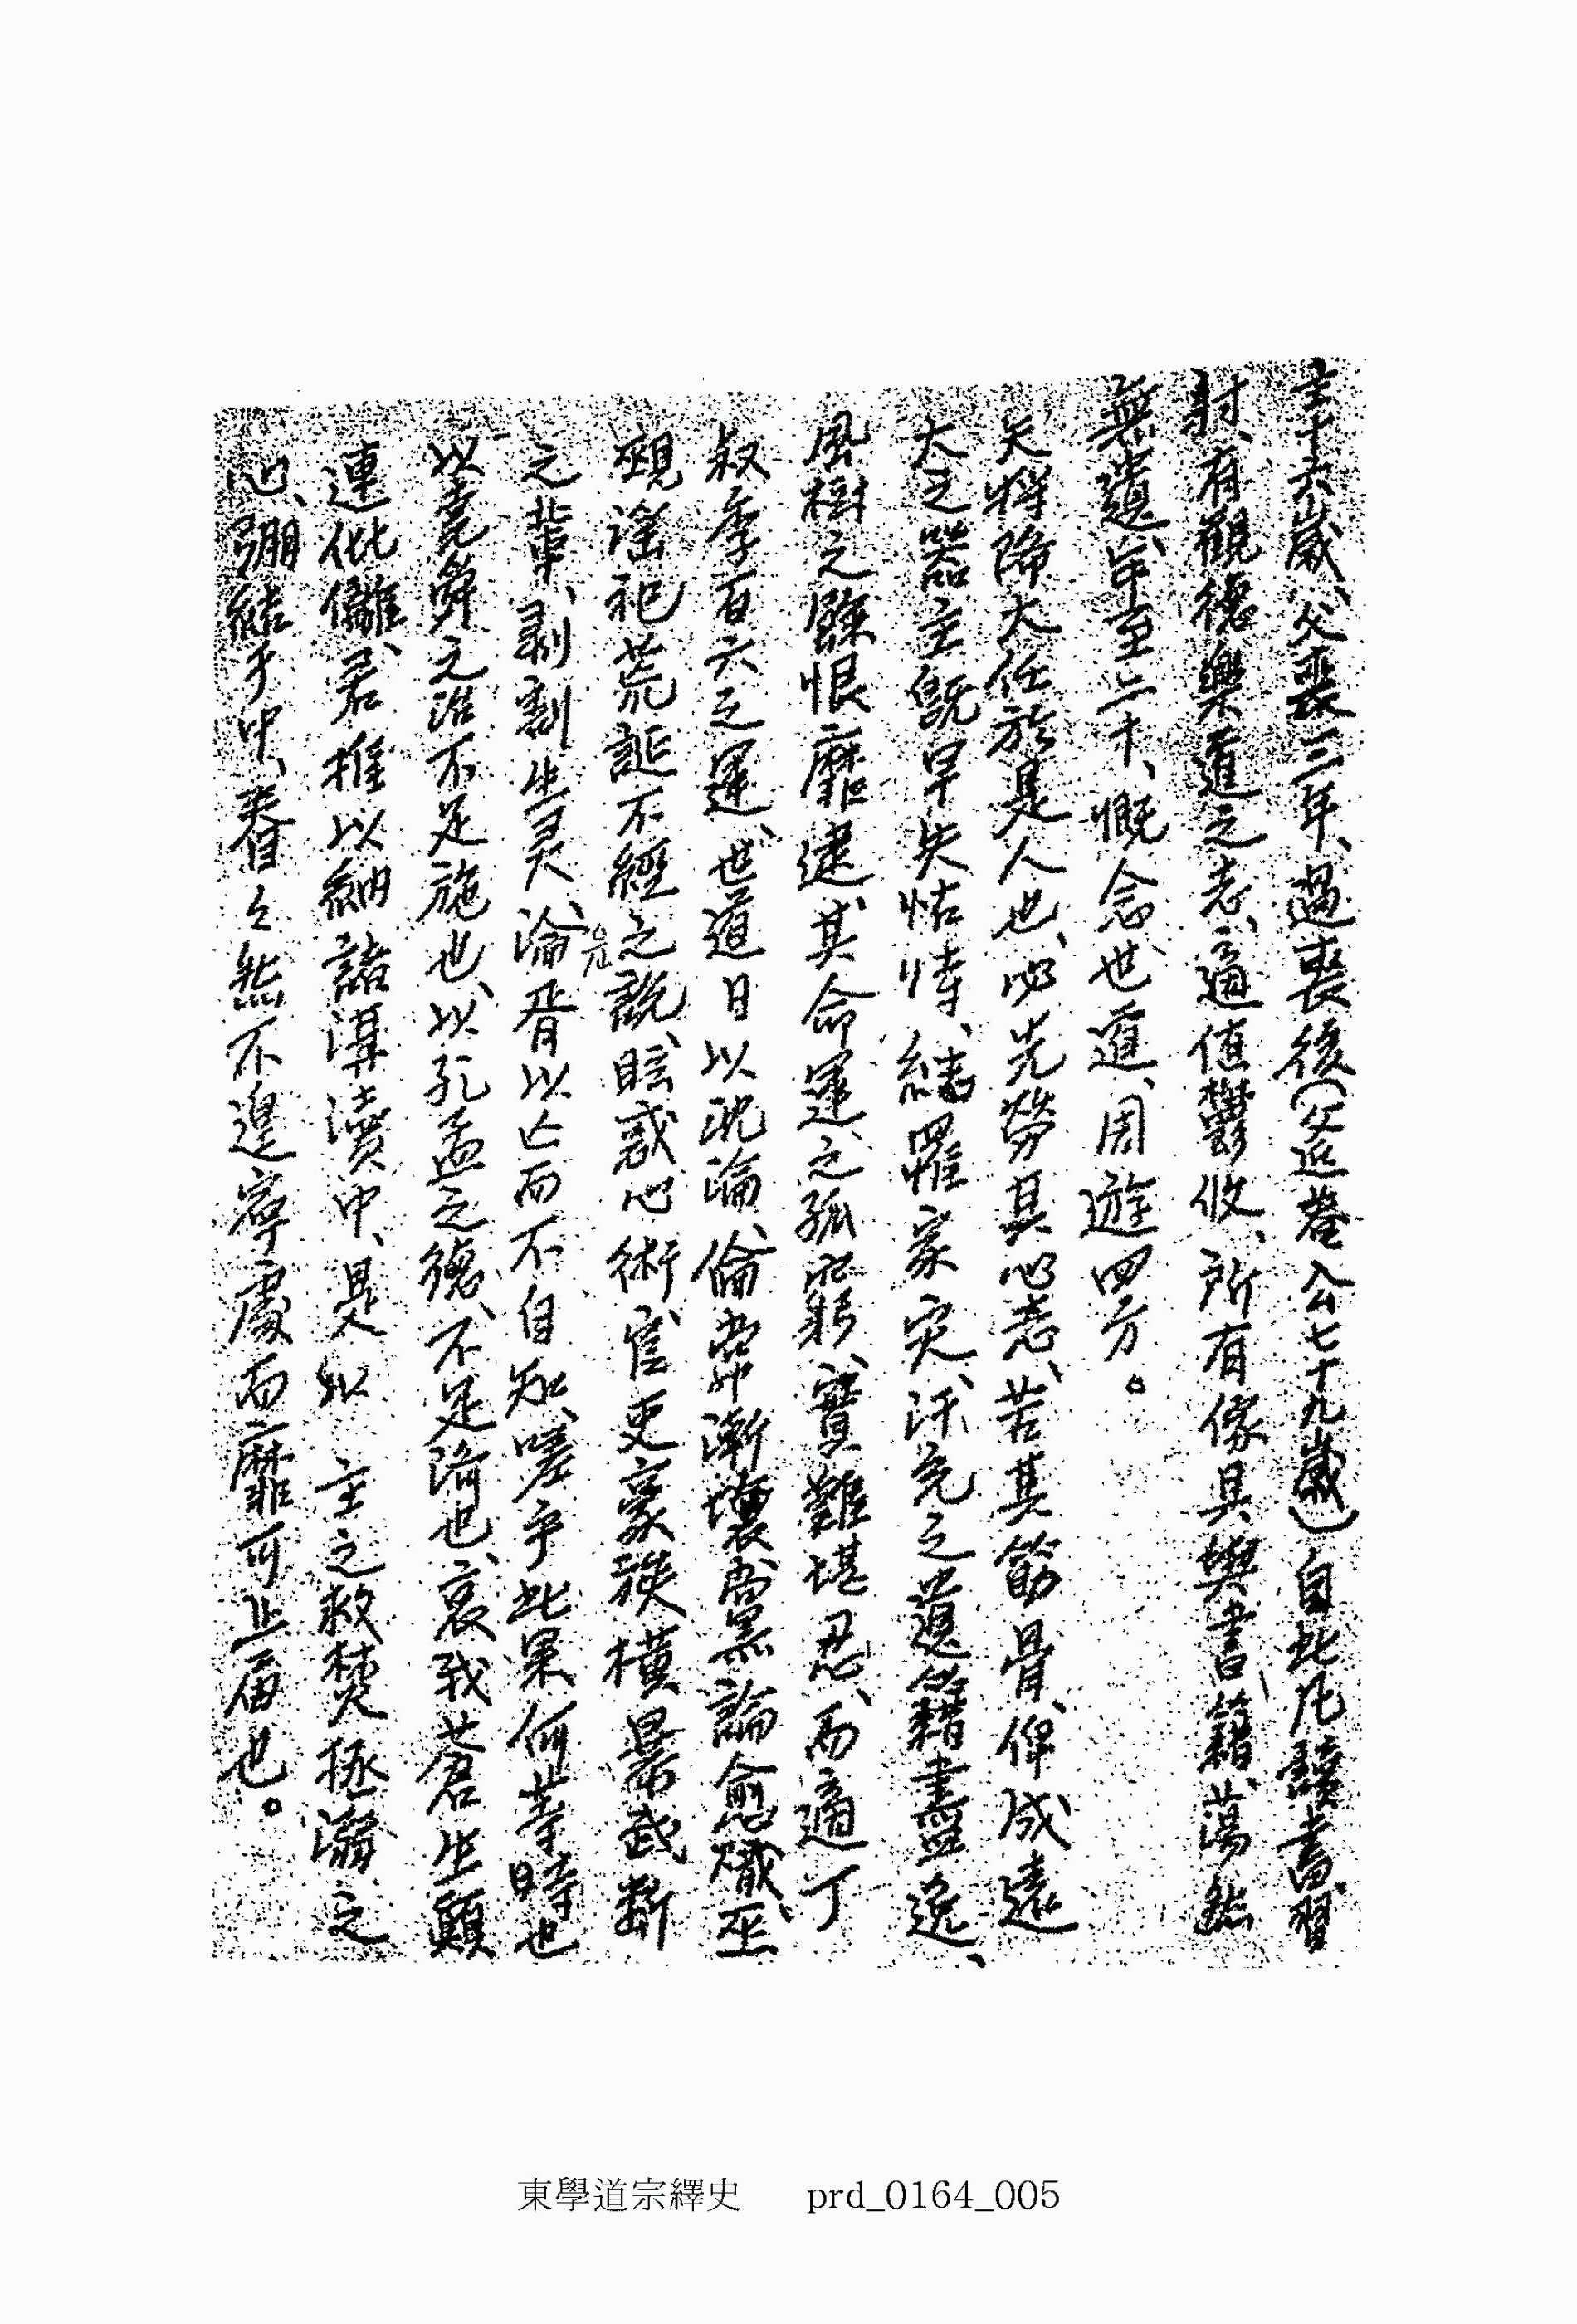 主十六歲、父喪三年、過喪後(父近菴公七十九歲)自此凡讀書習
射、有觀德樂道之志、適值鬱攸、所有傢具與書籍、蕩然
無遺、年至二十、慨念世道、周遊四方。
天將降大任於是人也、必先勞其心志、苦其筋骨、俾成遠
大之器、主旣早失怙恃、繼罹家灾、汗充之遺籍盡逸、
風樹之餘恨靡逮、其命運之孤窮、實難堪忍、而適丁
叔季百六之運、世道日以訛淪、倫常漸壞、黨論愈熾、巫
覡謠祀荒誕不經之說、眩惑心術、官吏豪族橫暴武斷
之輩、剥割生灵、淪胥以亡而不自知、嗟乎此果何等時也
以堯舜之治不足施也、以孔孟之德、不足 也、哀我蒼生顚
連仳離、若推以納諸溝瀆中、是以 主之救焚拯溺之
心、弸結于中、眷々然不遑寧處而靡可止屆也。
東學道宗繹史 prd_0164_005